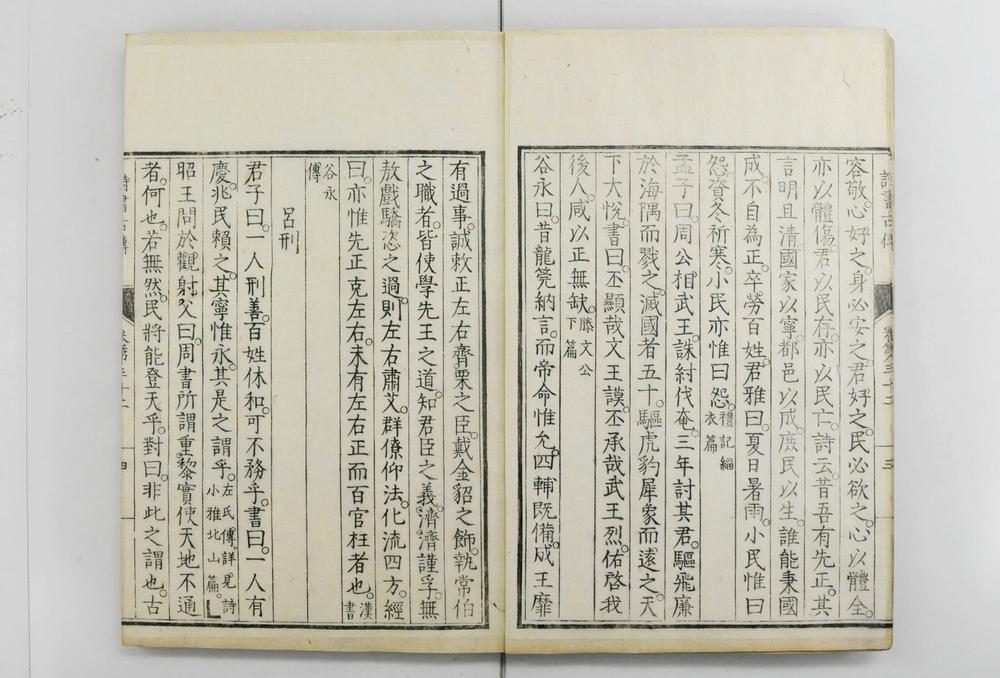 詩書古傳 卷第三十二 三
容敬。心好之。身必安之。君好之。民必欲之。心以體全。
亦以體傷。君以民存。亦以民亡。詩云。昔吾有先正。其
言明且清。國家以寧。都邑以成。庶民以生。誰能秉國
成。不自為正。卒勞百姓。君雅曰。夏日暑雨。小民惟曰
怨。資冬祈寒。小民亦惟曰怨。禮記緇衣篇
孟子曰。周公相武王。誅紂伐奄。三年討其君。驅飛廉
於海隅而戮之。滅國者五十。驅虎豹犀象而遠之。天
下大悅。書曰。丕顯哉文王謨。丕承哉武王烈。佑啓我
後人。咸以正無缺。滕文公下篇
谷永曰。昔龍筦納言。而帝命惟允。四輔既備。成王靡
有過事。誠敕正左右齊栗之臣。戴金貂之飾。執常伯
之職者。皆使學先王之道。知君臣之義。濟濟謹孚。無
敖戲驕恣之過。則左右肅艾。群僚仰法。化流四方。經
曰。亦惟先正克左右。未有左右正而百官枉者也。漢書
谷永傳
呂刑
君子曰。一人刑善。百姓休和。可不務乎。書曰。一人有
慶。兆民賴之。其寧惟永。其是之謂乎。左氏傳。詳見詩小雅北山篇。
昭王問於觀射父曰。周書所謂重黎實使天地不通
者。何也。若無然。民將能登天乎。對曰。非此之謂也。古
詩書古傳 卷第三十二 四